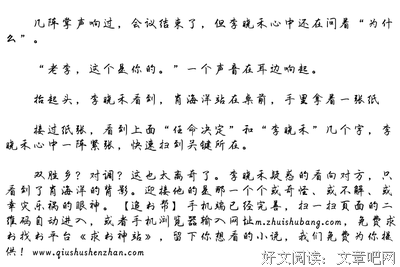 几阵掌声响过，会议结束了，但李晓禾心中还在问着“为什
么”。
“老李，这个是你的。”一个声音在耳边响起。
抬起头，李晓禾看到，肖海洋站在桌前，手里拿着一张纸
接过纸张，看到上面“任命决定”和“李晓禾”几个字，李
晓禾心中一阵紧张，快速扫到关键所在。
双胜乡？对调？这也太离奇了。李晓禾疑惑的看向对方，只
看到了肖海洋的背影。迎接他的是那一个个或奇怪、或不解、或
幸灾乐祸的眼神。【追书帮】手机端已经完善，扫一扫页面的二
维码自动进入，或者手机浏览器输入网址m.zhuishubang.com，免费求
书找书平台《求书神站》，留下你想看的小说，我们免费为你提
供！www.qiushushenzhan.com
好文阅读：文章吧网